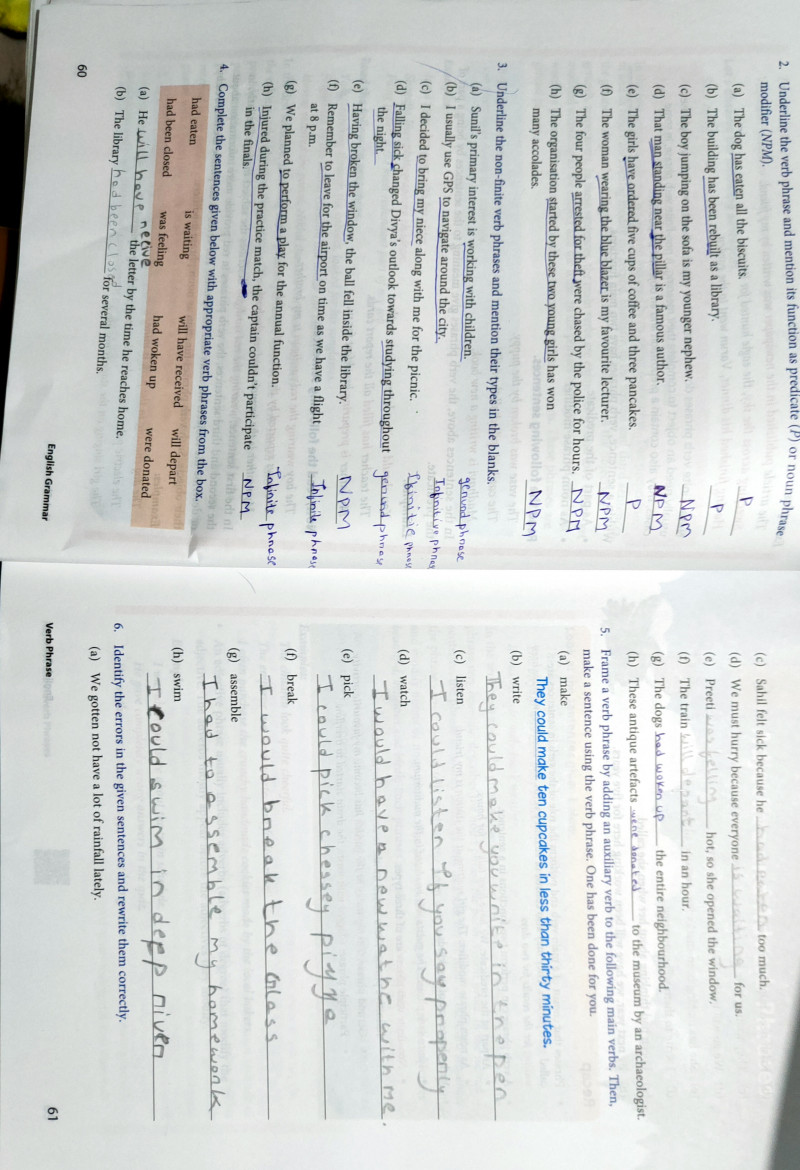 2. Underline the verb phrase and mention its function as predicate (P) or noun phrase
modifier (NPM).
(a) The dog has eaten all the biscuits. P
(b) The building has been rebuilt as a library. P
(c) The boy jumping on the sofa is my younger nephew. NPM
(d) That man standing near the pillar is a famous author. NPM
(e) The girls have ordered five cups of coffee and three pancakes. P
(f) The woman wearing the blue blazer is my favourite lecturer. NPM
(g) The four people arrested for theft were chased by the police for hours. NPM
(h) The organisation started by these two young girls has won
many accolades. NPM
3. Underline the non-finite verb phrases and mention their types in the blanks.
(a) Sunil's primary interest is working with children. gerund phrase
(b) I usually use GPS to navigate around the city. Infinitive phrase
(c) I decided to bring my niece along with me for the picnic. phrase
(d) Falling sick changed Divya's outlook towards studying throughout
the night. gerund phrase
(e) Having broken the window, the ball fell inside the library. NPM
(f) Remember to leave for the airport on time as we have a flight
at 8 p.m. Infinite phrase
(g) We planned to perform a play for the annual function. Infinite phrase
(h) Injured during the practice match, the captain couldn't participate
in the finals. NPM
4. Complete the sentences given below with appropriate verb phrases from the box.
had eaten is waiting will have received will depart
had been closed was feeling had woken up were donated
(a) He will have the letter by the time he reaches home.
(b) The library had been closed for several months.
60 English Grammar
(c) Sahil felt sick because he had eaten too much.
(d) We must hurry because everyone is waiting for us.
(e) Preeti was felling hot, so she opened the window.
(f) The train will depart in an hour.
(g) The dogs had woken up the entire neighbourhood.
(h) These antique artefacts were donated to the museum by an archaeologist.
5. Frame a verb phrase by adding an auxiliary verb to the following main verbs. Then,
make a sentence using the verb phrase. One has been done for you.
(a) make
They could make ten cupcakes in less than thirty minutes.
(b) write
They could make you write in the pen
(c) listen
I could listen if you say properly
(d) watch
I would have a new watch with me.
(e) pick
I could pick chessey
(f) break
I would break the Glass
(g) assemble
I had to assemble my homework
(h) swim
I could swim in depp river
6. Identify the errors in the given sentences and rewrite them correctly.
(a) We gotten not have a lot of rainfall lately.
Verb Phrase 61